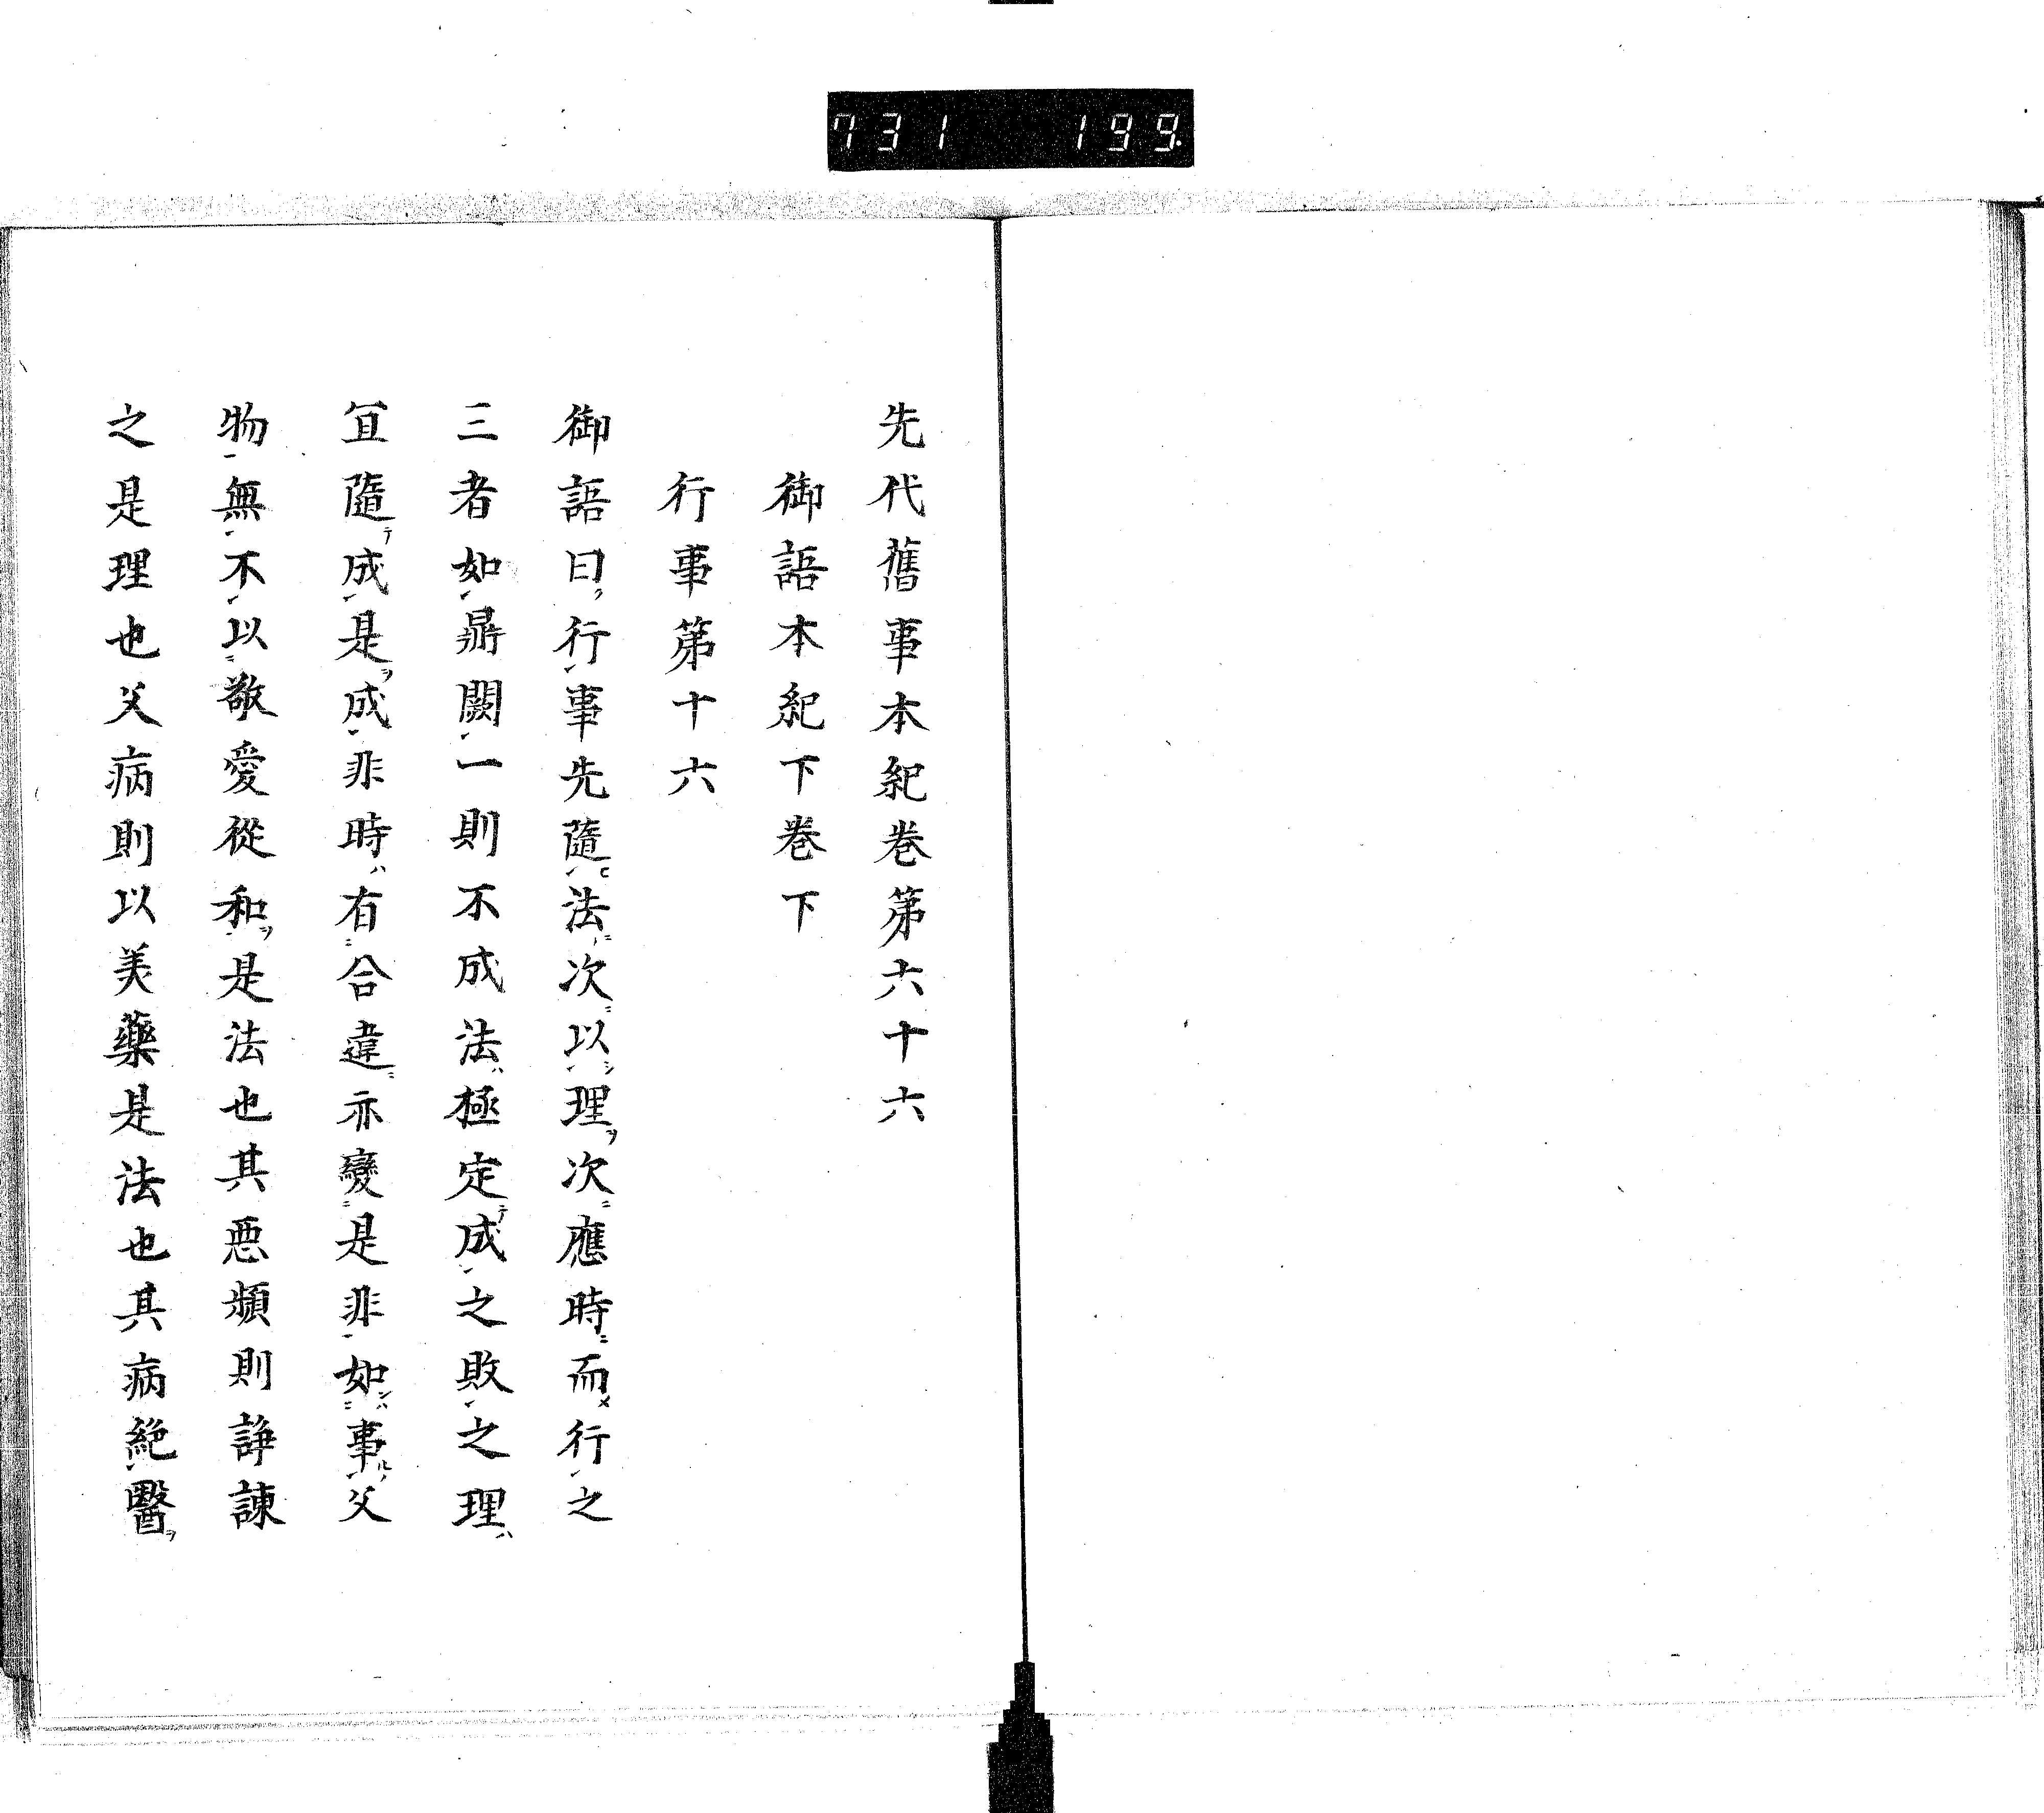 731 199.
先代舊事本紀卷第六十六
御語本紀下卷下
行事第十六
御語曰行事先隨法次以理次應時而行之
三者如鼎闕一則不成法極定成之敗之理
宜隨成是成非時有合違亦變是非如事父
物無不以敬愛從和是法也其悪頻則諍諌
之是理也父病則以美藥是法也其病絶醫